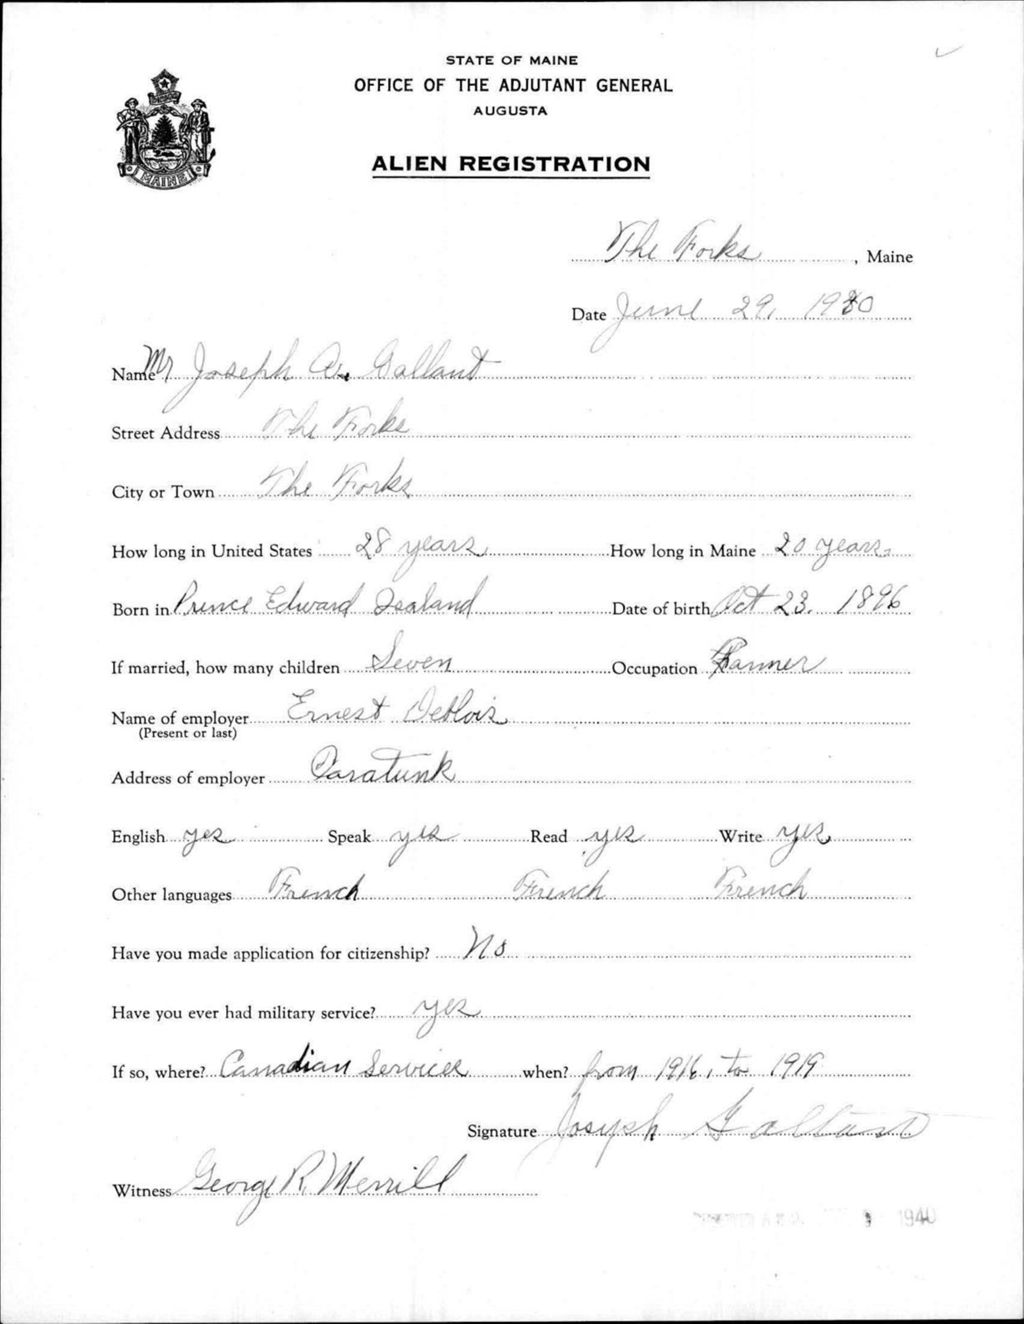 STATE OF MAINE
OFFICE OF THE ADJUTANT GENERAL
AUGUSTA
MAINE
ALIEN REGISTRATION
The Forks, Maine
Date June 29, 1940
Name Mr Joseph A. Gallant
Street Address The Forks
City or Town The Forks
How long in United States 28 years How long in Maine 20 years
Born in Prince Edward Isaland Date of birth Oct 23. 1896
If married, how many children Seven Occupation Farmer
Name of employer Ernest Deblois
(Present or last)
Address of employer Caratunk
English yes Speak yes Read yes Write yes
Other languages French French French
Have you made application for citizenship? No
Have you ever had military service? yes
If so, where? Canadian Services when? from 1916, to 1919
Signature Joseph Gallant
Witness George R. Merrill
9 1940